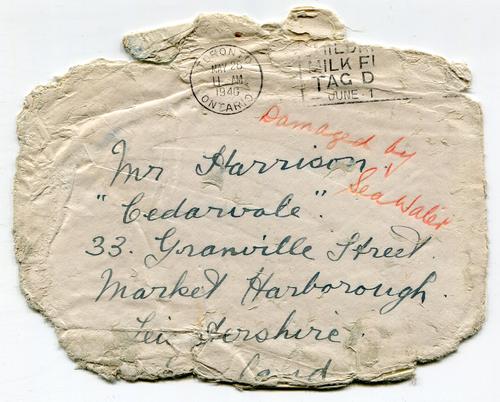 TORONTO
MAY 26
11 AM
1946
ONTARIO
MILK F
TAG D
JUNE 1
Damaged by
Sea Water
Mr Harrison,
"Cedarvale".
33. Granville Street
Market Harborough.
Lei  ershire.
land